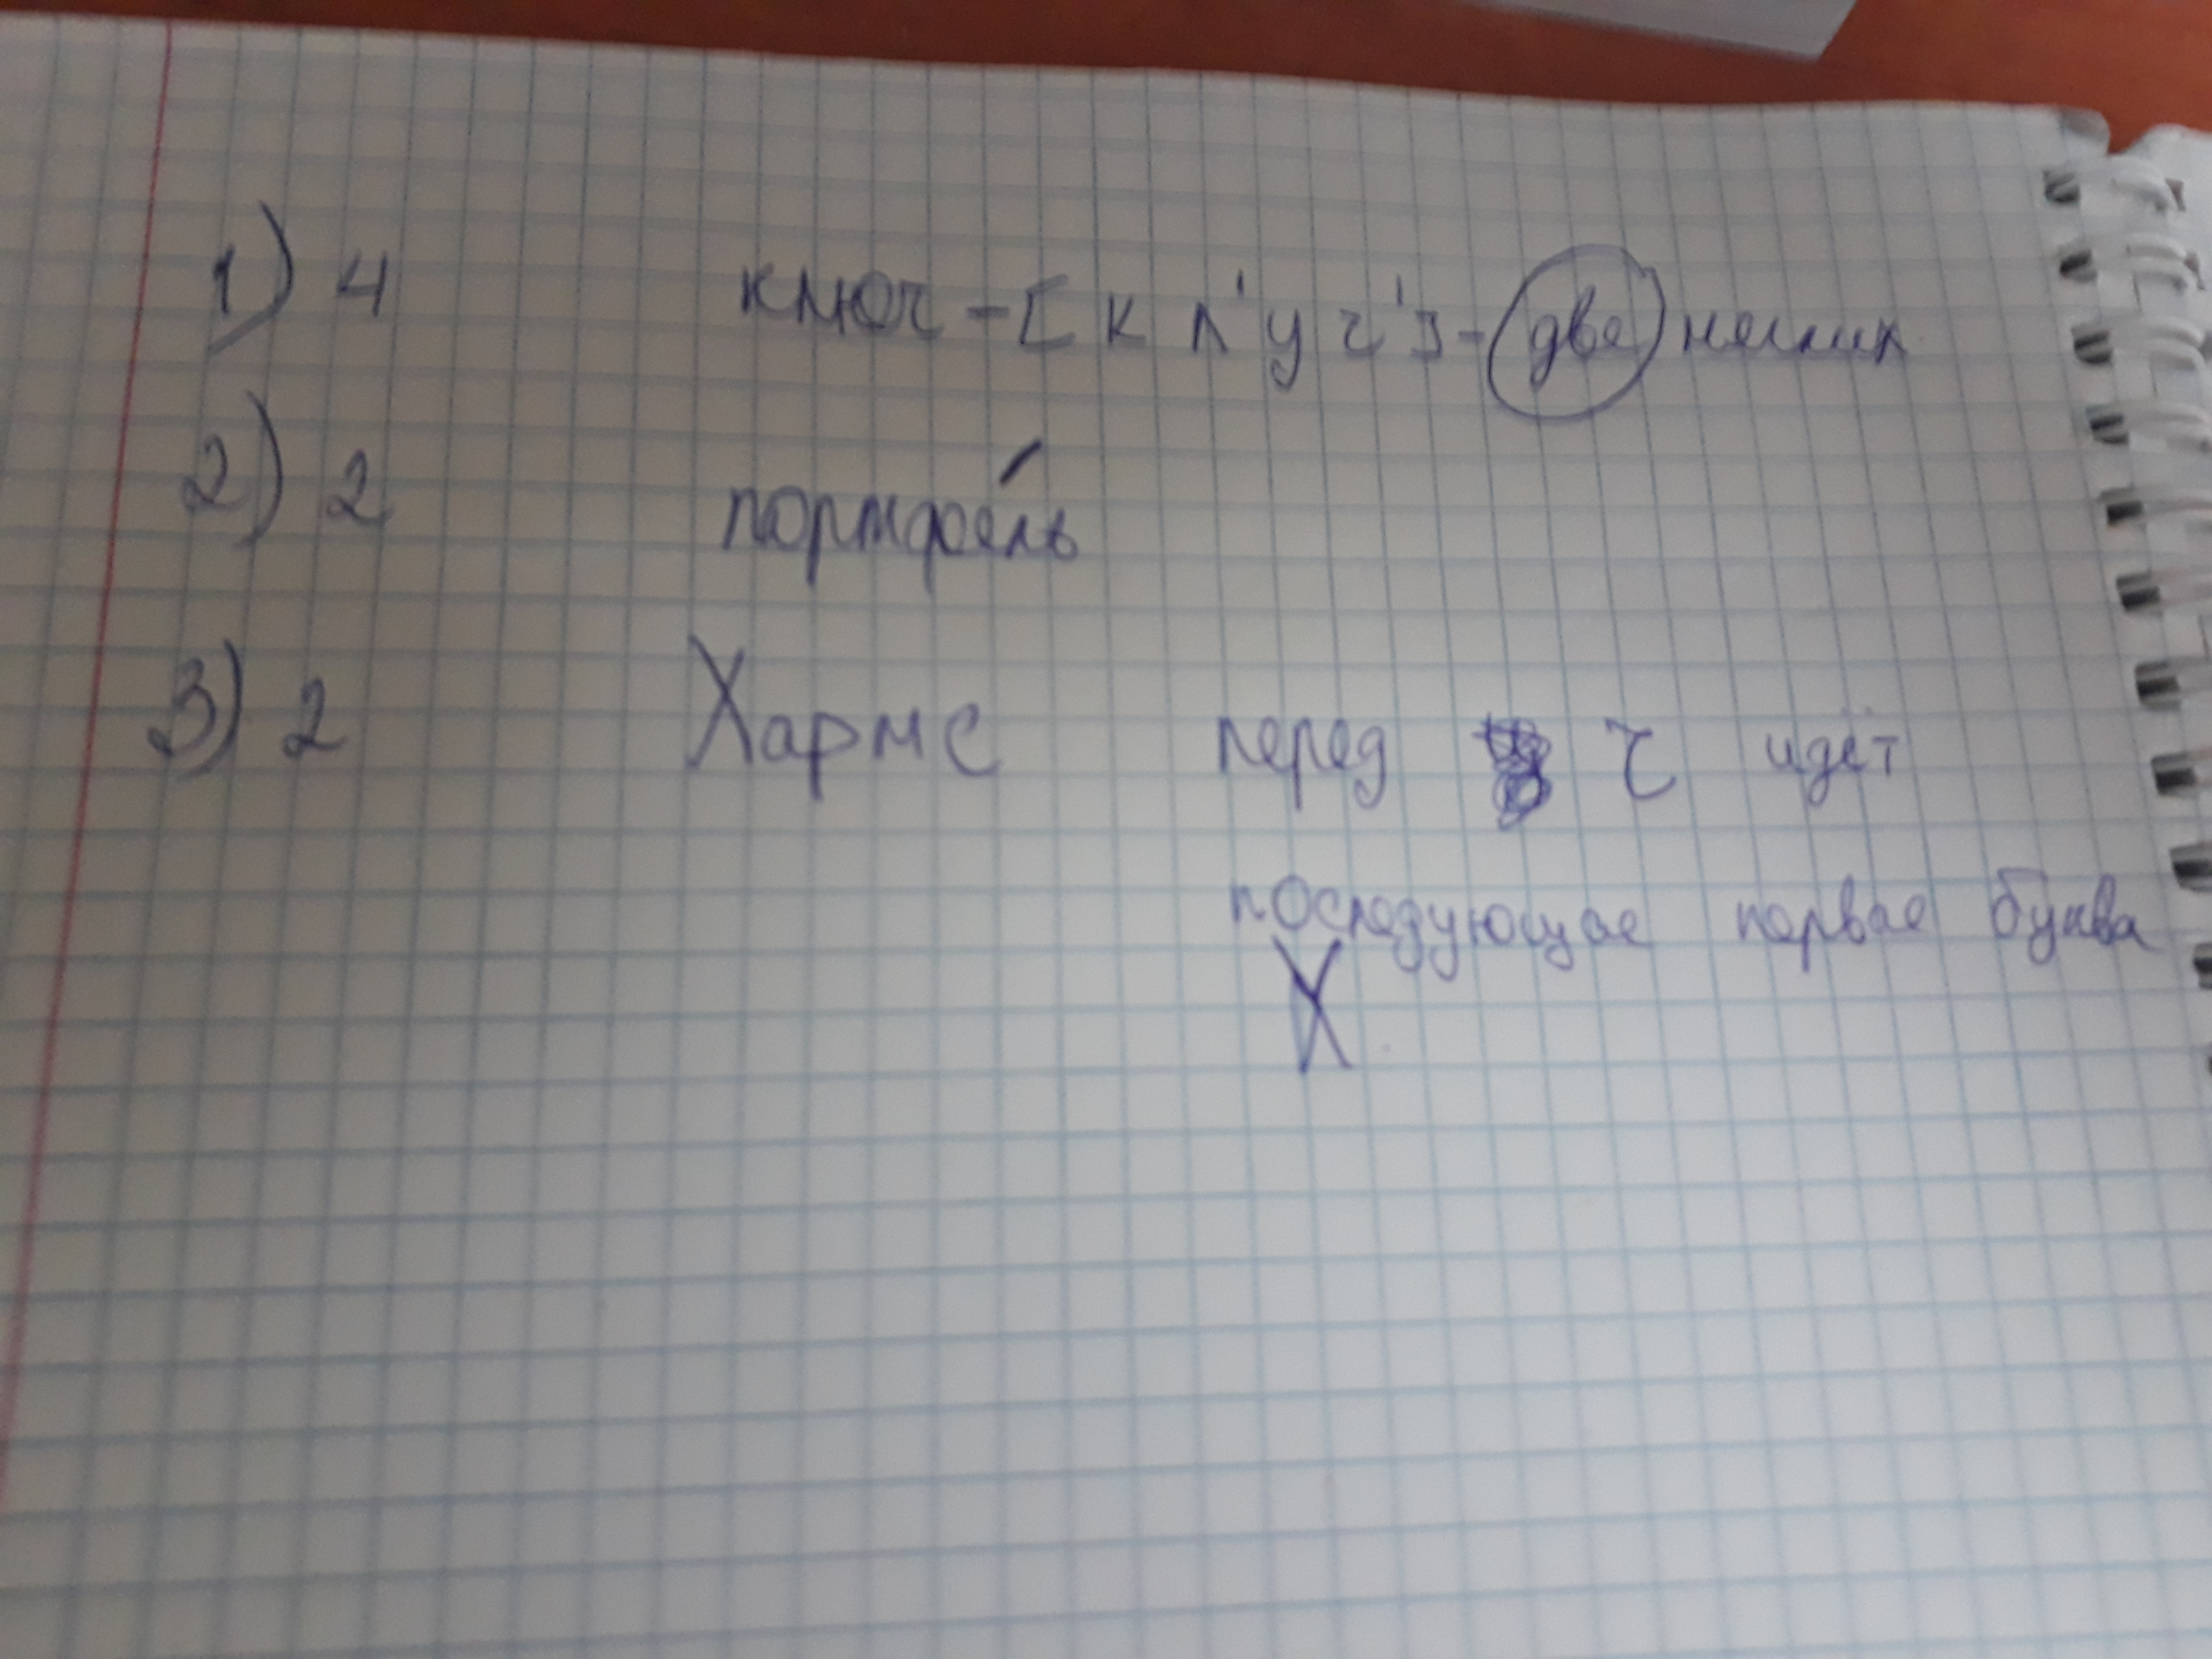 1) 4 ключ - [к л' у ч'] - две
2) 2 портфе́ль
3) 2 Хармс перед ч идёт
последующае первае буква
Х